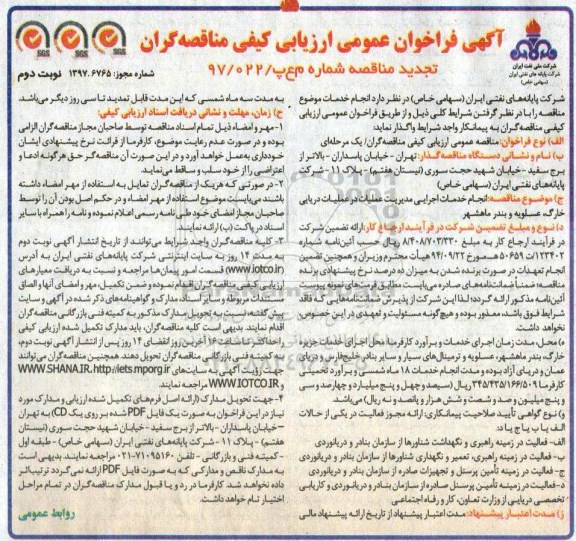 آگهی فراخوان عمومی ارزیابی کیفی مناقصه‌گران
تجدید مناقصه شماره م‌ع‌پ/۹۷/۰۲۲
شماره مجوز: ۱۳۹۷.۶۷۶۵
نوبت دوم
شرکت ملی نفت ایران
شرکت پایانه های نفتی ایران
(سهامی خاص)
SGS
SGS
SGS
شرکت پایانه‌های نفتی ایران (سهامی خاص) در نظر دارد انجام خدمات موضوع
مناقصه را با در نظر گرفتن شرایط کلی ذیل و از طریق فراخوان عمومی ارزیابی
کیفی مناقصه‌گران به پیمانکار واجد شرایط واگذار نماید:
الف) نوع فراخوان: مناقصه عمومی ارزیابی کیفی مناقصه‌گران/ یک مرحله‌ای
ب) نام و نشانی دستگاه مناقصه‌گذار: تهران - خیابان پاسداران - بالاتر از
برج سفید - خیابان شهید حجت سوری (نیستان هفتم) - پلاک ۱۱ - شرکت
پایانه‌های نفتی ایران (سهامی خاص)
ج) موضوع مناقصه: انجام خدمات اجرایی مدیریت عملیات در عملیات دریایی
خارگ، عسلویه و بندر ماهشهر
د) نوع و مبلغ تضمین شرکت در فرآیند ارجاع کار: ارائه تضمین شرکت
در فرآیند ارجاع کار به مبلغ ۸/۴۰۸/۷۰۳/۳۳۰ ریال حسب آئین‌نامه شماره
۱۲۳۴۰۲/ت ۵۰۶۵۹ هـ مورخ ۹۴/۰۹/۲۲ هیأت محترم وزیران و همچنین تضمین
انجام تعهدات در صورت برنده شدن به میزان ده درصد نرخ پیشنهادی برنده
مناقصه؛ ضمناً ضمانت‌نامه‌های صادره می‌بایست مطابق فرم‌های نمونه پیوست
آئین‌نامه مذکور ارائه گردد؛ لذا این شرکت از پذیرش ضمانت‌نامه‌هایی که فاقد
شرایط فوق باشد، معذور بوده و هیچ‌گونه مسئولیت و تعهدی در این خصوص
نخواهد داشت.
ه) محل، مدت زمان اجرای خدمات و برآورد کارفرما: محل اجرای خدمات جزیره
خارگ، بندر ماهشهر، عسلویه و ترمینال‌های سیار و سایر بنادر خلیج فارس و دریای
عمان و دریای آزاد بوده و مدت انجام خدمات ۱۸ ماه شمسی و برآورد تخمینی
کارفرما ۳۴۵/۴۳۵/۱۶۶/۵۰۹ ریال (سیصد و چهل و پنج میلیارد و چهارصد و سی
و پنج میلیون و صد و شصت و شش هزار و پانصد و نه ریال) می‌باشد.
و) نوع گواهی تأیید صلاحیت پیمانکاری: ارائه مجوز فعالیت در یکی از حالات
الف یا ب یا ج یا د:
الف- فعالیت در زمینه راهبری و نگهداشت شناورها از سازمان بنادر و دریانوردی
ب- فعالیت در زمینه راهبری، تعمیر و نگهداری شناورها از سازمان بنادر و دریانوردی
ج- فعالیت در زمینه تأمین پرسنل و تجهیزات صادره از سازمان بنادر و دریانوردی
د- فعالیت در زمینه تأمین پرسنل صادره از سازمان بنادر و دریانوردی و کاریابی
تخصصی دریایی از وزارت تعاون، کار و رفاه اجتماعی
ز) مدت اعتبار پیشنهاد: مدت اعتبار پیشنهاد از تاریخ ارائه پیشنهاد مالی
به مدت سه ماه شمسی که این مدت قابل تمدید تا سی روز دیگر می‌باشد.
ح) زمان، مهلت و نشانی دریافت اسناد ارزیابی کیفی:
۱- مهر و امضاء ذیل تمام اسناد مناقصه توسط صاحبان مجاز مناقصه‌گران الزامی
بوده و در صورت عدم رعایت موضوع، کارفرما از قرائت نرخ پیشنهادی ایشان
خودداری به‌عمل خواهد آورد و در این صورت آن مناقصه‌گر حق هرگونه ادعا و
اعتراضی را از خود سلب و ساقط می‌نماید.
۲- در صورتی که هریک از مناقصه‌گران تمایل به استفاده از مهر امضاء داشته
باشند می‌بایست موضوع استفاده از مهر امضاء و در حکم اصل بودن آن را توسط
صاحبان مجاز امضای خود طی نامه رسمی اعلام نموده و نامه را همراه با سایر
اسناد در پاکت (ب) ارائه نمایند.
۳- کلیه مناقصه‌گران واجد شرایط می‌توانند از تاریخ انتشار آگهی نوبت دوم
به مدت ۱۴ روز به سایت اینترنتی شرکت پایانه‌های نفتی ایران به آدرس
(www.iotco.ir) قسمت امور پیمان‌ها مراجعه و نسبت به دریافت معیارهای
ارزیابی کیفی مناقصه‌گران اقدام نموده و ضمن تکمیل، مهر و امضای آنها و الصاق
مستندات مربوطه و سایر اسناد، مدارک و گواهینامه‌های ذکر شده در آگهی و سایت
پیش گفته، نسبت به تحویل مدارک مذکور به کمیته فنی بازرگانی مناقصه‌گران
اقدام نمایند. بدیهی است کلیه مناقصه‌گران، باید مدارک تکمیل شده ارزیابی کیفی
را حداکثر تا ساعت ۱۶ آخرین روز انقضای ۱۴ روز پس از انتشار آگهی نوبت دوم،
به کمیته فنی و بازرگانی مناقصه‌گران تحویل دهند. همچنین مناقصه‌گران می‌توانند
جهت رؤیت آگهی به سایت‌های WWW.SHANA.IR، http://iets.mporg.ir
و WWW.IOTCO.IR مراجعه نمایند.
۴- جهت تحویل مدارک (ارائه اصل فرم‌های تکمیل شده ارزیابی و مدارک مورد
نیاز در این فراخوان به صورت یک فایل PDF شده بر روی یک CD) به تهران
- خیابان پاسداران - بالاتر از برج سفید - خیابان شهید حجت سوری (نیستان
هفتم) - پلاک ۱۱ - شرکت پایانه‌های نفتی ایران (سهامی خاص) - طبقه اول
- کمیته فنی و بازرگانی - تلفن ۷۱۰۹۵۱۶۰-۰۲۱ مراجعه نمایند. بدیهی است
به مدارک ناقص و مدارکی که به صورت فایل PDF ارائه نمی‌گردد ترتیب اثر
داده نخواهد شد. کارفرما در رد و یا قبول مدارک مناقصه‌گران در تمام مراحل
اختیار تام خواهد داشت.
روابط عمومی